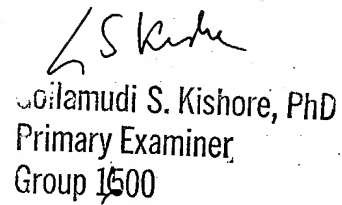 S Kishore
Gollamudi S. Kishore, PhD
Primary Examiner
Group 1600